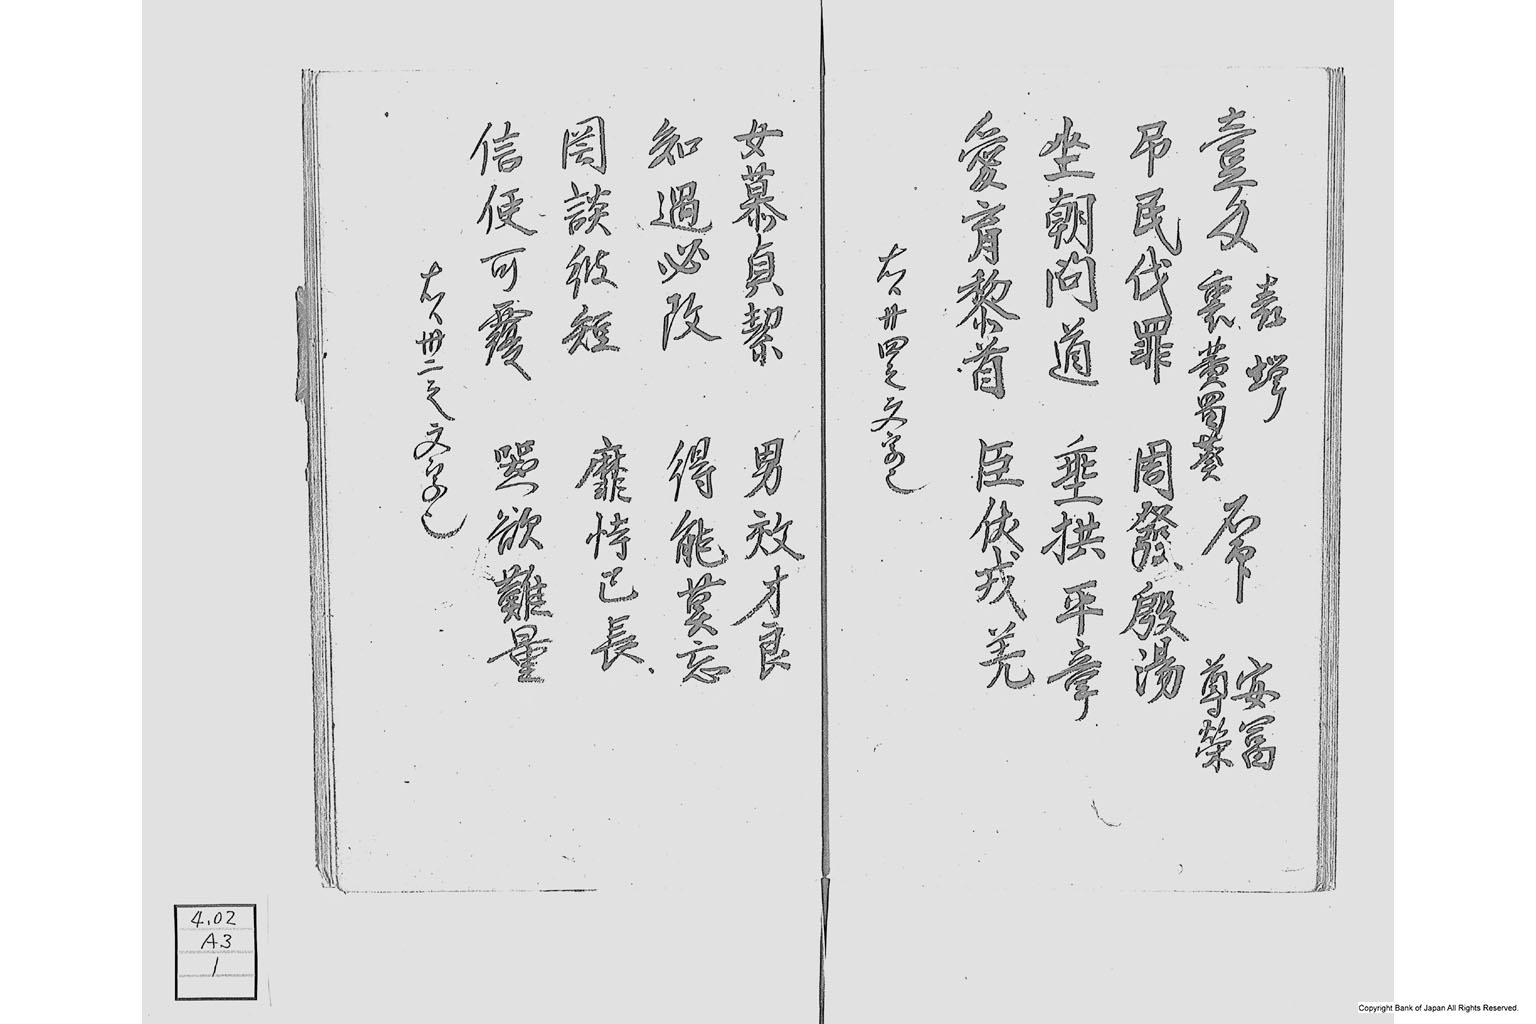 壹匁
表
裏 蜀葵
安冨
尊榮
吊民伐罪 周發殷湯
坐朝問道 垂拱平章
愛育黎首 臣伏戎羌
右ハ廿四之文字也
女慕貞絜 男效才良
知過必改 得能莫忘
罔談彼短 靡恃己長
信使可覆 器欲難量
右ハ卅二之文字也
4.02
A3
1
Copyright Bank of Japan All Rights Reserved.